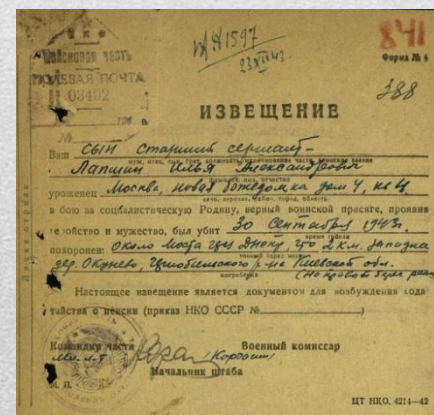 НКО
Войсковая часть
ПОЛЕВАЯ ПОЧТА
03402
194 г.
№
№ 1597
23 XII 43
841
Форма № 4
388
ИЗВЕЩЕНИЕ
Ваш сын старший сержант-
муж, сын, брат, военное звание
Лапшин Илья Александрович
фамилия, имя, отчество
уроженец Москва, Новая Божедомка дом 4, кв 4
область
в бою за социалистическую Родину, верный воинской присяге, проявив
геройство и мужество, был убит 30 Сентября 1943г.
похоронен: Около моста через Днепр, что 2 км. западнее
дер. Окунево, р-на Киевской обл.
погребения
Настоящее извещение является документом для возбуждения хода
тайства о пенсии (приказ НКО СССР №
Командир части
Военный комиссар
Начальник штаба
М. П.
ЦТ НКО. 4214—42